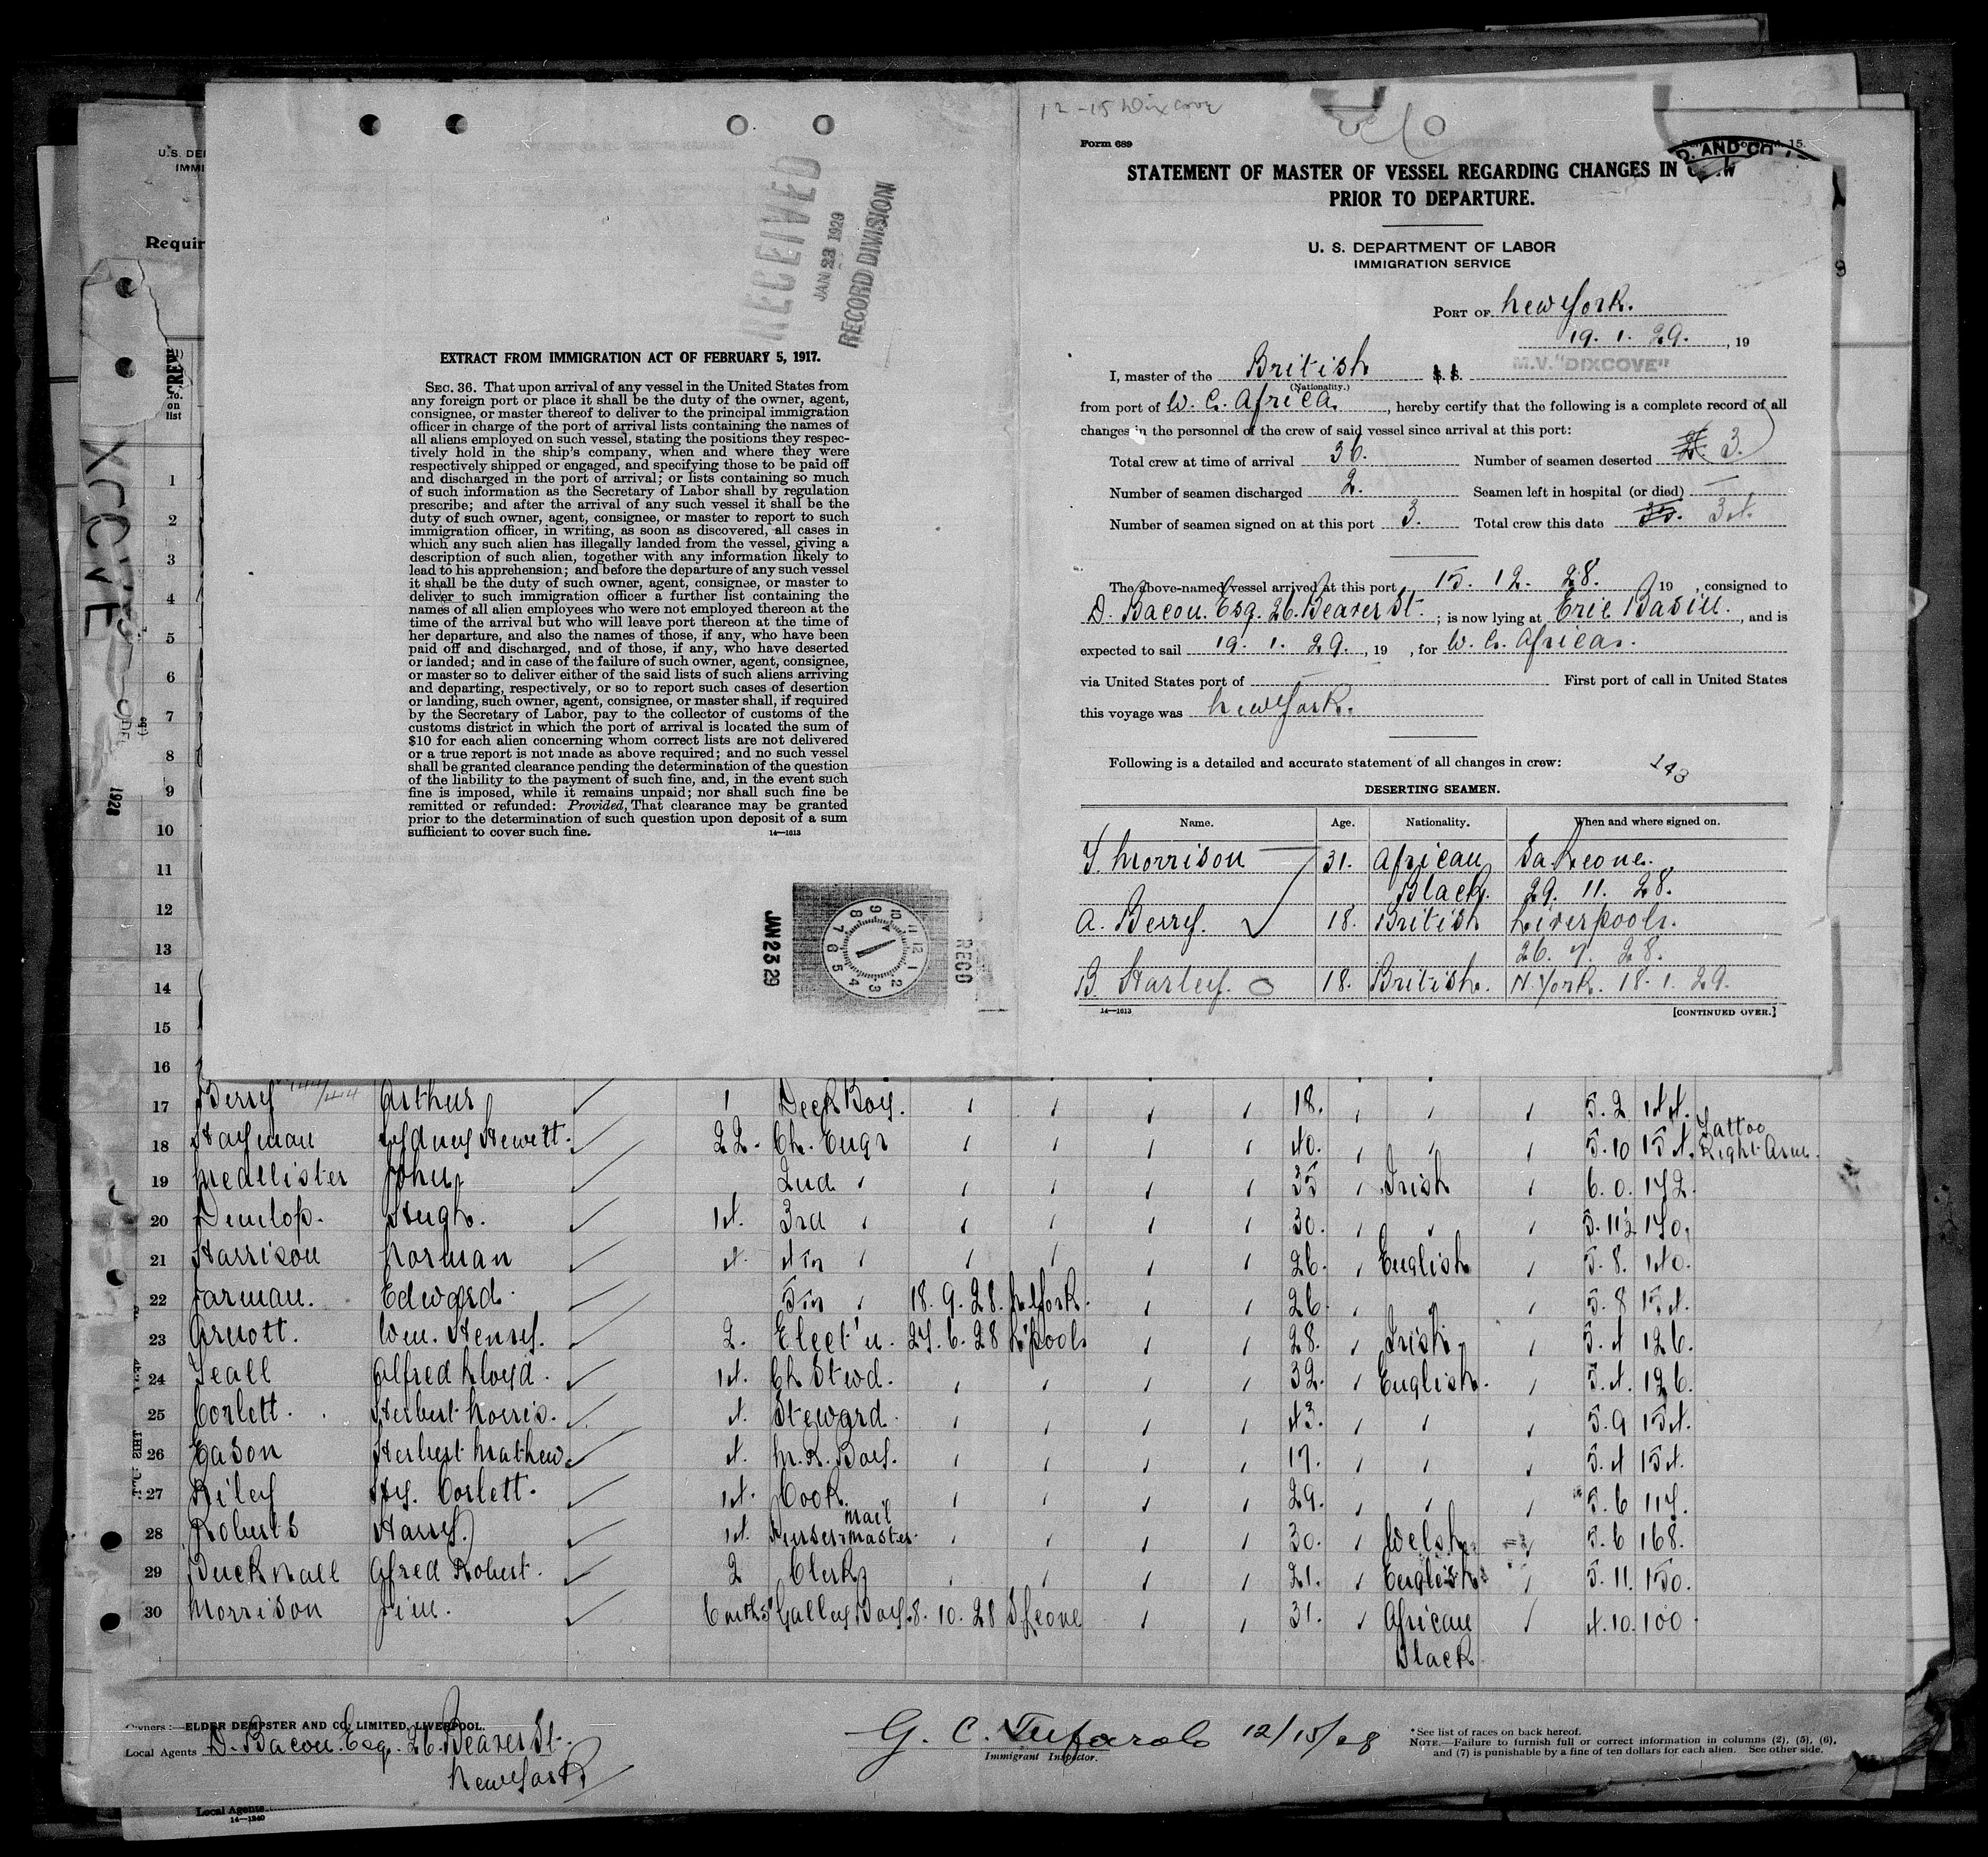 12-15 Dixcove
Form 689
STATEMENT OF MASTER OF VESSEL REGARDING CHANGES IN
PRIOR TO DEPARTURE.
U. S. DEPARTMENT OF LABOR
IMMIGRATION SERVICE
PORT OF New York.
19. 1. 29. , 19
I, master of the British S. S. M.V. "DIXCOVE"
(Nationality.)
from port of W. C. Africa. , hereby certify that the following is a complete record of all
changes in the personnel of the crew of said vessel since arrival at this port:
Total crew at time of arrival 36. Number of seamen deserted 3.
Number of seamen discharged 2. Seamen left in hospital (or died) —
Number of seamen signed on at this port 3. Total crew this date 35. 34.
The above-named vessel arrived at this port 15. 12. 28. 19 , consigned to
D. Bacon. Esq. 26. Beaver St. ; is now lying at Erie Basin. , and is
expected to sail 19. 1. 29. , 19 , for W. C. Africa.
via United States port of First port of call in United States
this voyage was New York.
Following is a detailed and accurate statement of all changes in crew:
143
DESERTING SEAMEN.
Name. Age. Nationality. When and where signed on.
J. Morrison 31. African Sa. Leone.
Black. 29. 11. 28.
A. Berry. 18. British Liverpool.
26. 7. 28.
B. Harley. 18. British. N. York. 18. 1. 29.
14—1613 [CONTINUED OVER.]
RECEIVED
JAN 23 1929
RECORD DIVISION
EXTRACT FROM IMMIGRATION ACT OF FEBRUARY 5, 1917.
SEC. 36. That upon arrival of any vessel in the United States from
any foreign port or place it shall be the duty of the owner, agent,
consignee, or master thereof to deliver to the principal immigration
officer in charge of the port of arrival lists containing the names of
all aliens employed on such vessel, stating the positions they respec-
tively hold in the ship's company, when and where they were
respectively shipped or engaged, and specifying those to be paid off
and discharged in the port of arrival; or lists containing so much
of such information as the Secretary of Labor shall by regulation
prescribe; and after the arrival of any such vessel it shall be the
duty of such owner, agent, consignee, or master to report to such
immigration officer, in writing, as soon as discovered, all cases in
which any such alien has illegally landed from the vessel, giving a
description of such alien, together with any information likely to
lead to his apprehension; and before the departure of any such vessel
it shall be the duty of such owner, agent, consignee, or master to
deliver to such immigration officer a further list containing the
names of all alien employees who were not employed thereon at the
time of the arrival but who will leave port thereon at the time of
her departure, and also the names of those, if any, who have been
paid off and discharged, and of those, if any, who have deserted
or landed; and in case of the failure of such owner, agent, consignee,
or master so to deliver either of the said lists of such aliens arriving
and departing, respectively, or so to report such cases of desertion
or landing, such owner, agent, consignee, or master shall, if required
by the Secretary of Labor, pay to the collector of customs of the
customs district in which the port of arrival is located the sum of
$10 for each alien concerning whom correct lists are not delivered
or a true report is not made as above required; and no such vessel
shall be granted clearance pending the determination of the question
of the liability to the payment of such fine, and, in the event such
fine is imposed, while it remains unpaid; nor shall such fine be
remitted or refunded: Provided, That clearance may be granted
prior to the determination of such question upon deposit of a sum
sufficient to cover such fine. 14—1613
JAN 23 29
RECO
U.S. DE
IMMI
Requir
CREW
No.
on
list
1
2
3
4
5
6
7
8
9
10
11
12
13
14
15
16
1928
17 Berry Arthur 1 Deck Boy. 18. 5.2 144.
18 Hayman Sydney Hewitt. 22. Ch. Engr 40. 5.10 154. Tattoo Right Arm.
19 McAllister John 2nd 35 Irish 6.0. 172.
20 Dunlop. Hugh. 14. 3rd 30. 5.11½ 170.
21 Harrison Norman 4. 4th 26. English 5.8. 140.
22 Jarman. Edward. 5th 18. 9. 28. N. York. 26. 5.8 154.
23 Arnott. Wm. Henry. 2. Elect'n. 27. 6. 28 L'pool. 28. Irish 5.4 126.
24 Teall Alfred Lloyd. 14. Ch Stewd. 32. English. 5.4. 126.
25 Corlett. Herbert Norris. 4. Steward. 43. 5.9 154.
26 Eason Herbert Mathew. 4. M. R. Boy. 17. 5.4 154.
27 Riley Hy. Corlett. 14. Cook. 29. 5.6 117.
28 Roberts Harry. 14. Purser mail master. 30. Welsh 5.6 168.
29 Bucknall Alfred Robert. 2 Clerk 21. English 5.11. 150.
30 Morrison Jim. 6 mths Galley Boy. 8. 10. 28 S Leone 31. African 4.10. 100
Black.
Owners:—ELDER DEMPSTER AND CO. LIMITED, LIVERPOOL.
Local Agents D. Bacon. Esq. 26. Beaver St.
New York
G. C. Tufarolo 12/15/28
Immigrant Inspector.
*See list of races on back hereof.
NOTE.—Failure to furnish full or correct information in columns (2), (5), (6),
and (7) is punishable by a fine of ten dollars for each alien. See other side.
Local Agents
14—1240